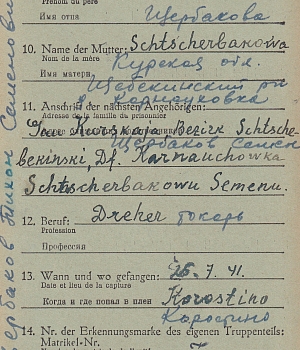 Prénom du père
Имя отца
Щербакова
10. Name der Mutter: Schtscherbakowa
Nom de la mère
Курская обл.
Имя матери
Щебекинский р-н
11. Anschrift der nächsten Angehörigen:
Adresse de la famille du prisonnier
Щербаков Семен
Kurskaja Bezirk Schtsche-
bekinski, Df. Karnauchowka
Schtscherbakowu Semenu.
12. Beruf: Dreher токарь
Profession
Профессия
13. Wann und wo gefangen: 26. 7. 41.
Date et lieu de la capture
Когда и где попал в плен Korostino
Коростино
14. Nr. der Erkennungsmarke des eigenen Truppenteils:
Matrikel-Nr.
Щербаков Тихон Семенович